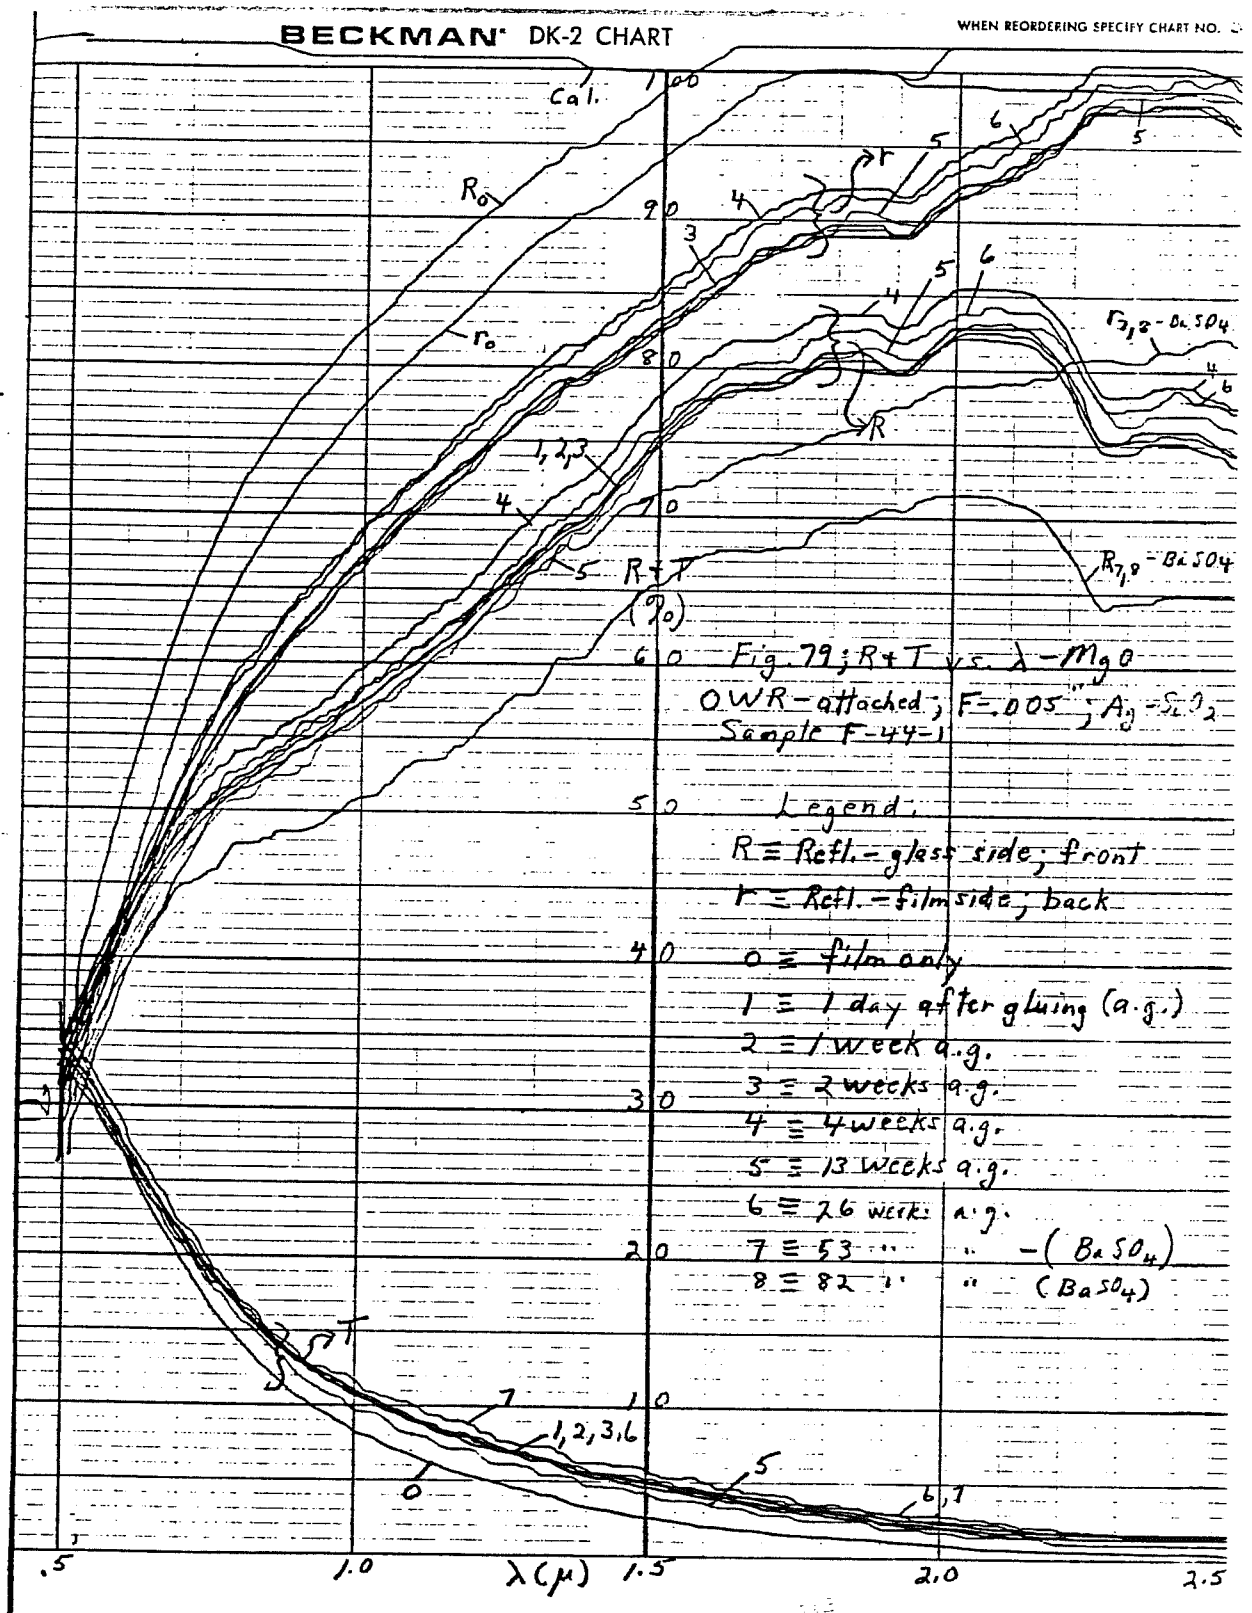 BECKMAN® DK-2 CHART
WHEN REORDERING SPECIFY CHART NO.
Cal.
100
6
5
r
R₀
4
90
3
r₀
5
6
4
r₇,₈ - BaSO₄
80
4
6
R
1,2,3
4
70
5
R+T
(%)
R₇,₈ - BaSO₄
60
Fig. 79; R+T vs. λ - MgO
OWR - attached; F=.005"; Ag-SiO₂
Sample F-44-1
50
Legend:
R ≡ Refl. - glass side; front
r ≡ Refl. - film side; back
40
0 ≡ film only
1 ≡ 1 day after gluing (a.g.)
2 ≡ 1 week a.g.
3 ≡ 2 weeks a.g.
30
4 ≡ 4 weeks a.g.
5 ≡ 13 weeks a.g.
6 ≡ 26 weeks a.g.
20
7 ≡ 53 " " - (BaSO₄)
8 ≡ 82 " " (BaSO₄)
T
7
10
1,2,3,6
5
0
6,7
.5 1.0 λ(μ) 1.5 2.0 2.5